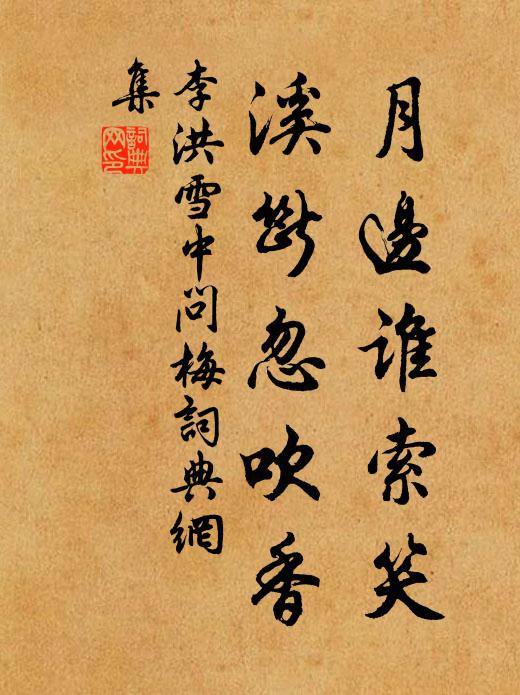 月邊誰索笑
溪斷忽吹香
李洪雪中問梅詞典網
集
詞典
网印